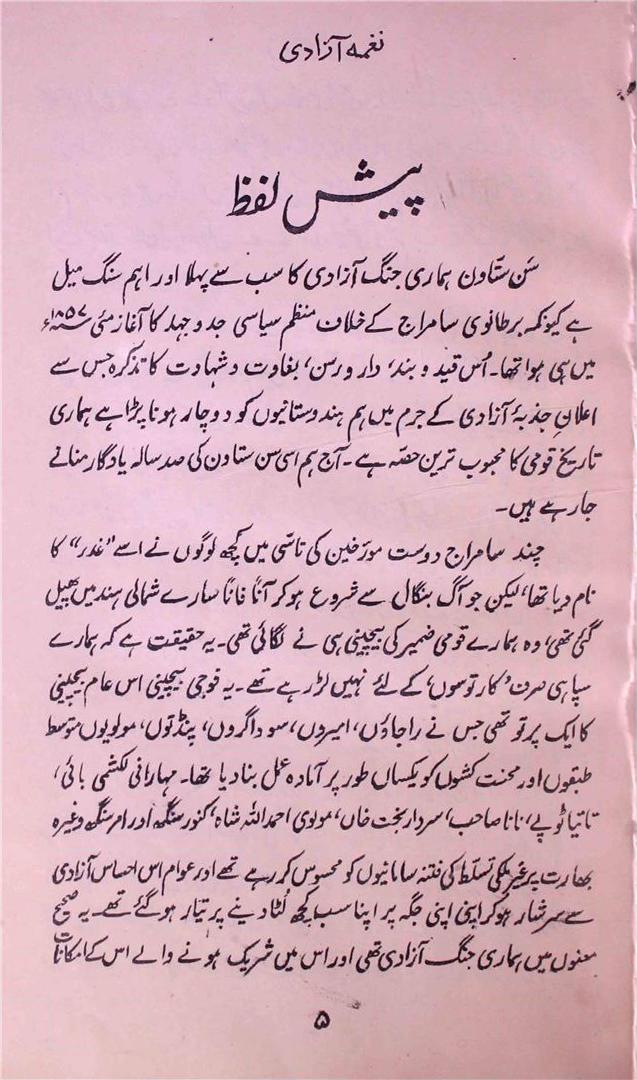 نغمہ آزادی
پیش لفظ
سَن ستّاون ہماری جنگ آزادی کا سب سے پہلا اور اہم سنگ میل
ہے کیونکہ برطانوی سامراج کے خلاف منظم سیاسی جدوجہد کا آغاز مئی ۱۸۵۷ء
میں ہی ہوا تھا۔ اُس قید و بند، دار و رسن، بغاوت و شہادت کا تذکرہ جس سے
اعلانِ جذبۂ آزادی کے جرم میں ہم ہندوستانیوں کو دوچار ہونا پڑا ہے ہماری
تاریخ قومی کا محبوب ترین حصّہ ہے۔ آج ہم اسی سن ستاون کی صد سالہ یادگار منانے
جارہے ہیں۔
چند سامراج دوست مورّخین کی تاسّی میں کچھ لوگوں نے اسے "غدر" کا
نام دیا تھا، لیکن جو آگ بنگال سے شروع ہو کر آناً فاناً سارے شمالی ہند میں پھیل
گئی تھی، وہ ہمارے قومی ضمیر کی بیچینی ہی نے لگائی تھی۔ یہ حقیقت ہے کہ ہمارے
سپاہی صرف 'کارتوسوں' کے لئے نہیں لڑ رہے تھے۔ یہ فوجی بیچینی اس عام بیچینی
کا ایک پرتو تھی جس نے راجاؤں، امیروں، سوداگروں، پنڈتوں، مولویوں متوسط
طبقوں اور محنت کشوں کو یکساں طور پر آمادہ عمل بنا دیا تھا۔ مہارانی لکشمی بائی،
تانتیا ٹوپے، نانا صاحب، سردار بخت خاں، مولوی احمد اللہ شاہ، کنور سنگھ اور امر سنگھ وغیرہ
بھارت پر غیر ملکی تسلّط کی فتنہ سامانیوں کو محسوس کر رہے تھے اور عوام اس احساس آزادی
سے سرشار ہو کر اپنی اپنی جگہ پر اپنا سب کچھ لُٹا دینے پر تیار ہو گئے تھے۔ یہ صحیح
معنوں میں ہماری جنگ آزادی تھی اور اس میں شریک ہونے والے اس کے امکانات
۵